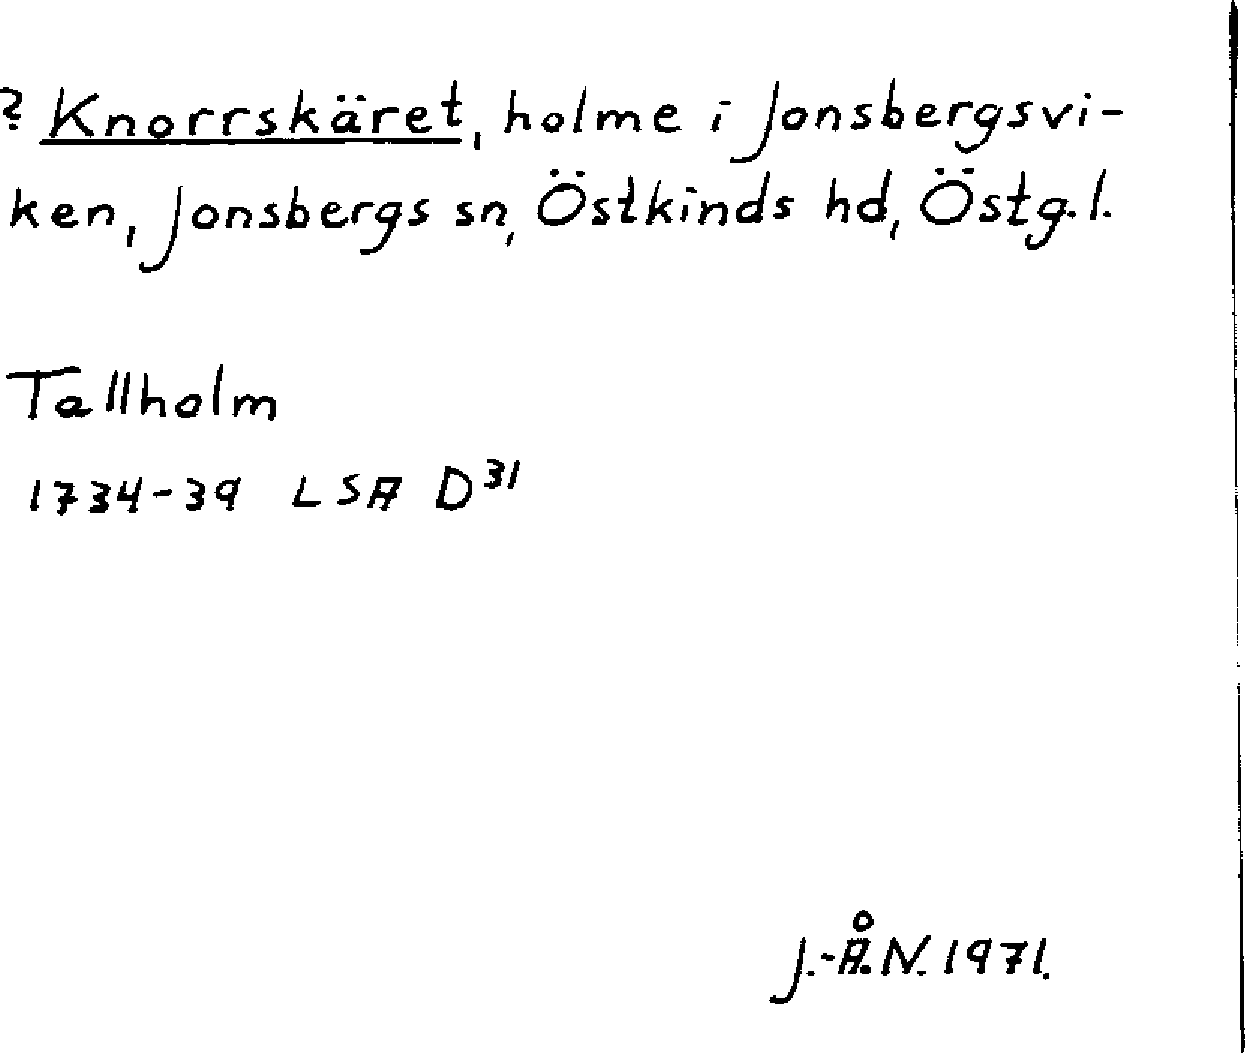 ? Knorrskäret, holme i Jonsbergsvi-
ken, Jonsbergs sn, Östkinds hd, Östg. l.
Tallholm
1734-39 LSA D³¹
J.-Å.N. 1971.